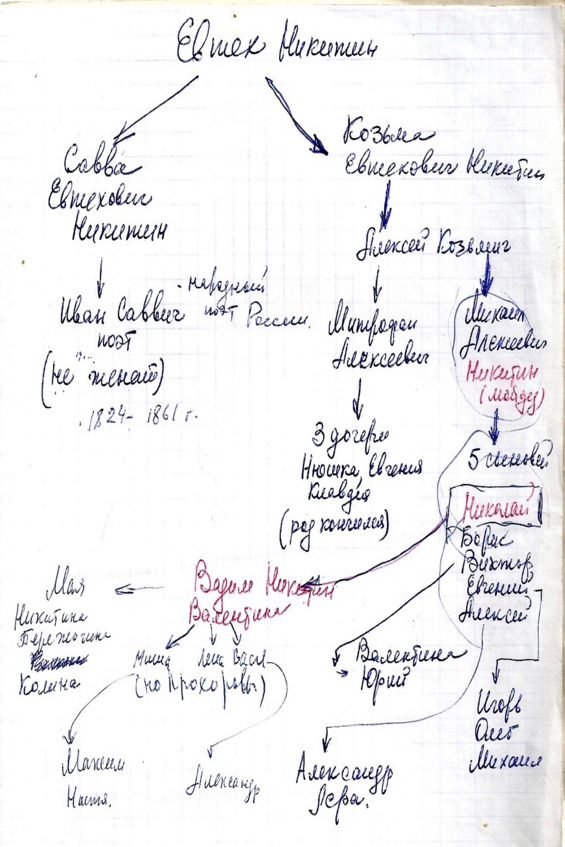 Евтех Никитин
Савва
Евтехович
Никитин
Козьма
Евтехович Никитин
Алексей Козьмич
Иван Саввич
поэт
(не женат)
1824- 1861 г.
- народный
поэт России.
Митрофан
Алексеевич
Михаил
Алексеевич
Никитин
3 дочери
Нюшка, Евгения
Клавдея
(род кончился)
5 сыновей
Николай
Борис
Виктор
Евгений
Алексей
Вадим Никитин
Валентина
Мая
Никитина
Бережогина
Колина
Миша Лена Вася
(но Прохоровы)
Валентина
Юрий
Игорь
Олег
Михаил
Максим
Настя.
Александр
Александр
Лера.